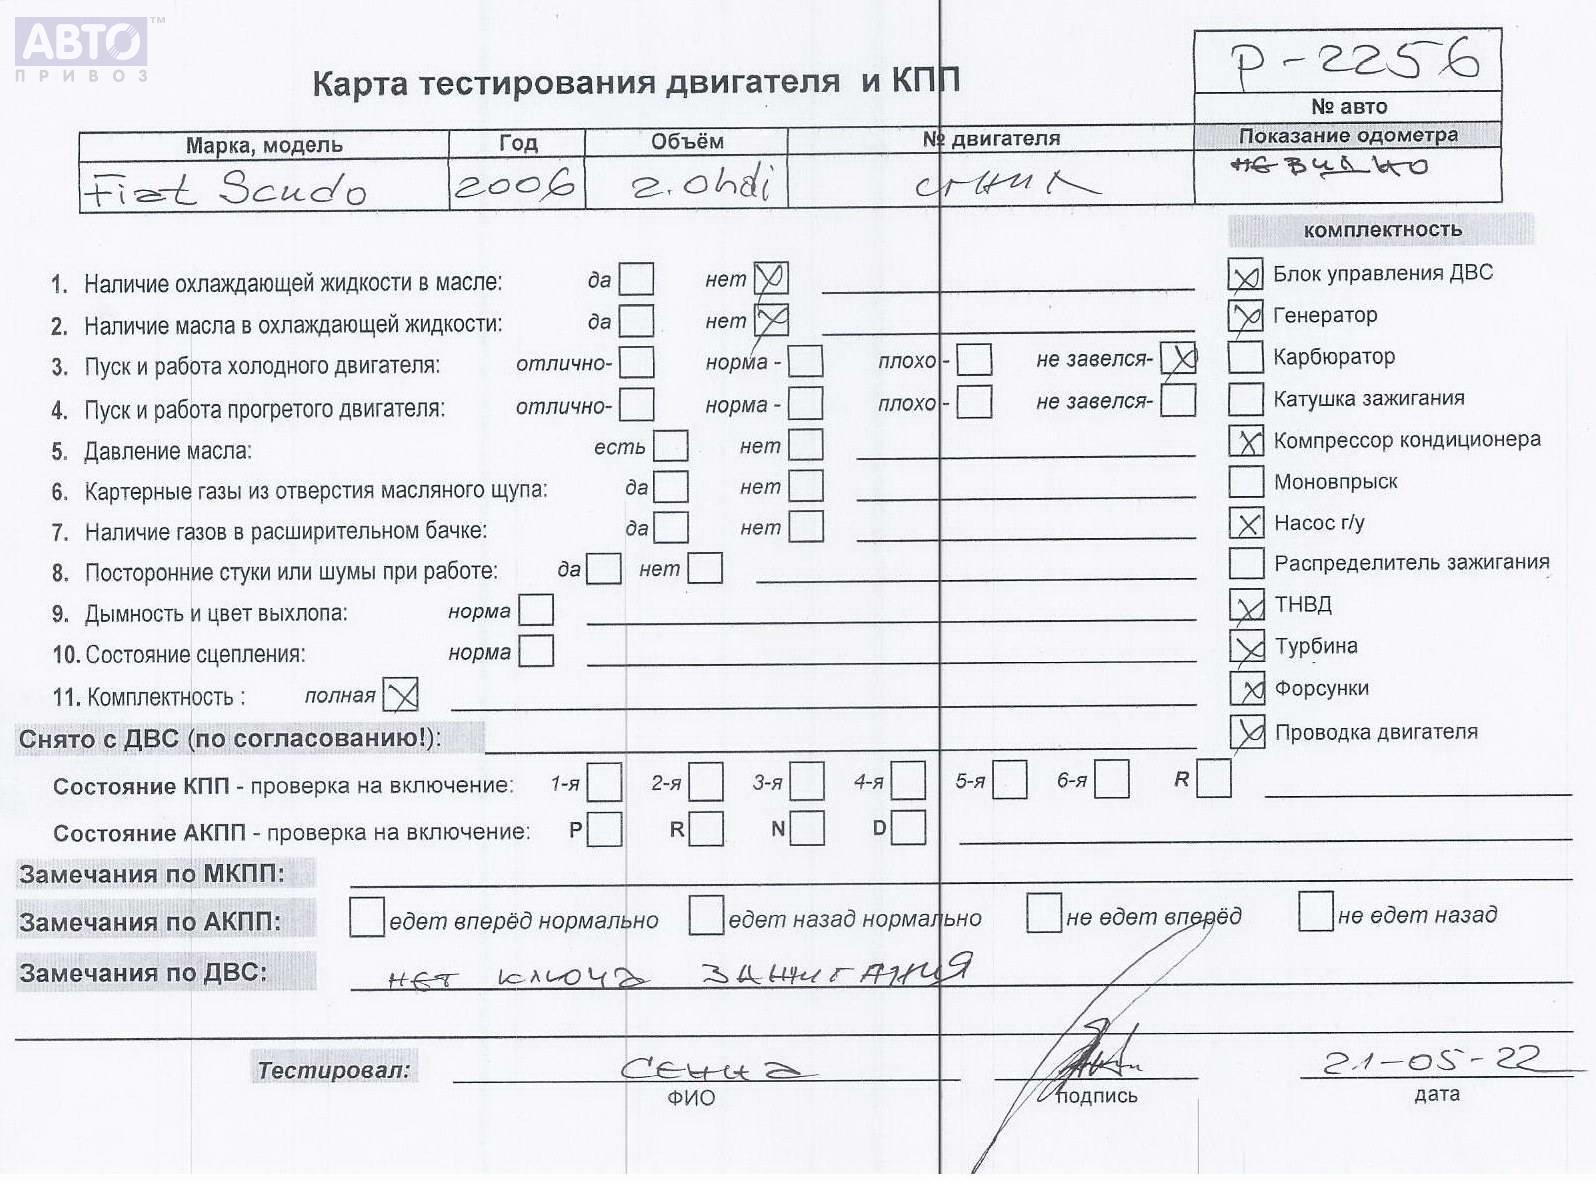 АВТО™
ПРИВОЗ
Карта тестирования двигателя и КПП
P-2256
№ авто
Марка, модель Год Объём № двигателя Показание одометра
Fiat Scudo 2006 2.0hdi не видно
комплектность
1. Наличие охлаждающей жидкости в масле: да нет Блок управления ДВС
2. Наличие масла в охлаждающей жидкости: да нет Генератор
3. Пуск и работа холодного двигателя: отлично- норма - плохо - не завелся- Карбюратор
4. Пуск и работа прогретого двигателя: отлично- норма - плохо - не завелся- Катушка зажигания
5. Давление масла: есть нет Компрессор кондиционера
6. Картерные газы из отверстия масляного щупа: да нет Моновпрыск
7. Наличие газов в расширительном бачке: да нет Насос г/у
8. Посторонние стуки или шумы при работе: да нет Распределитель зажигания
9. Дымность и цвет выхлопа: норма ТНВД
10. Состояние сцепления: норма Турбина
11. Комплектность : полная Форсунки
Снято с ДВС (по согласованию!): Проводка двигателя
Состояние КПП - проверка на включение: 1-я 2-я 3-я 4-я 5-я 6-я R
Состояние АКПП - проверка на включение: P R N D
Замечания по МКПП:
Замечания по АКПП: едет вперёд нормально едет назад нормально не едет вперёд не едет назад
Замечания по ДВС: нет ключа зажигания
Тестировал: 21-05-22
ФИО подпись дата